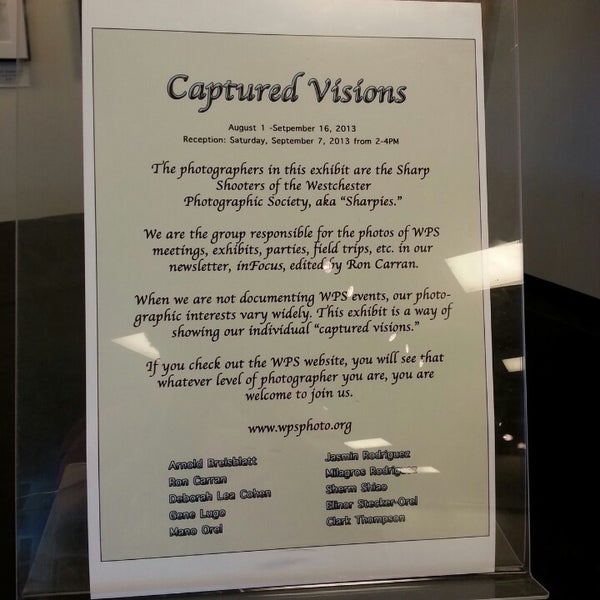 Captured Visions
August 1 -Setpember 16, 2013
Reception: Saturday, September 7, 2013 from 2-4PM
The photographers in this exhibit are the Sharp
Shooters of the Westchester
Photographic Society, aka "Sharpies."
We are the group responsible for the photos of WPS
meetings, exhibits, parties, field trips, etc. in our
newsletter, inFocus, edited by Ron Carran.
When we are not documenting WPS events, our photo-
graphic interests vary widely. This exhibit is a way of
showing our individual "captured visions."
If you check out the WPS website, you will see that
whatever level of photographer you are, you are
welcome to join us.
www.wpsphoto.org
Arnold Breisblatt
Ron Carran
Deborah Lea Cohen
Gene Lugo
Mano Orel
Jasmin Rodriguez
Milagros Rodriguez
Sherm Shiao
Elinor Stecker-Orel
Clark Thompson